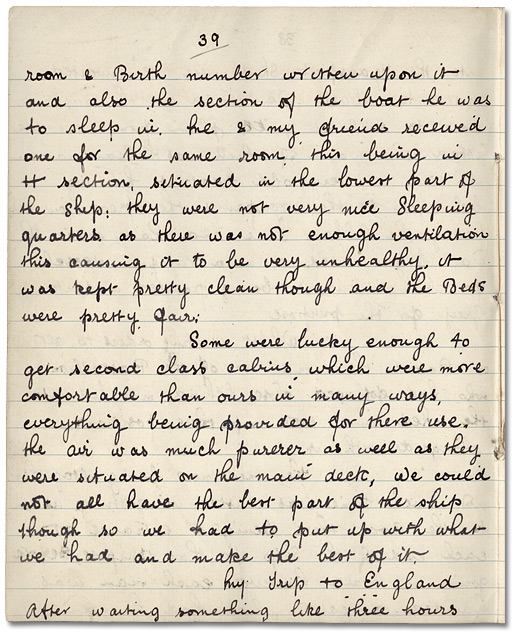 39
room & Birth number written upon it
and also the section of the boat he was
to sleep in. he & my friend received
one for the same room, this being in
H section, situated in the lowest part of
the Ship; they were not very nice Sleeping
quarters as there was not enough ventilation
this causing it to be very unhealthy, it
was kept pretty clean though and the Beds
were pretty fair;
Some were lucky enough to
get second class cabins, which were more
comfortable than ours in many ways,
everything being provided for there use.
the air was much purerer as well as they
were situated on the main deck, we could
not all have the best part of the ship
though so we had to put up with what
we had and make the best of it.
My Trip to England
After waiting something like three hours